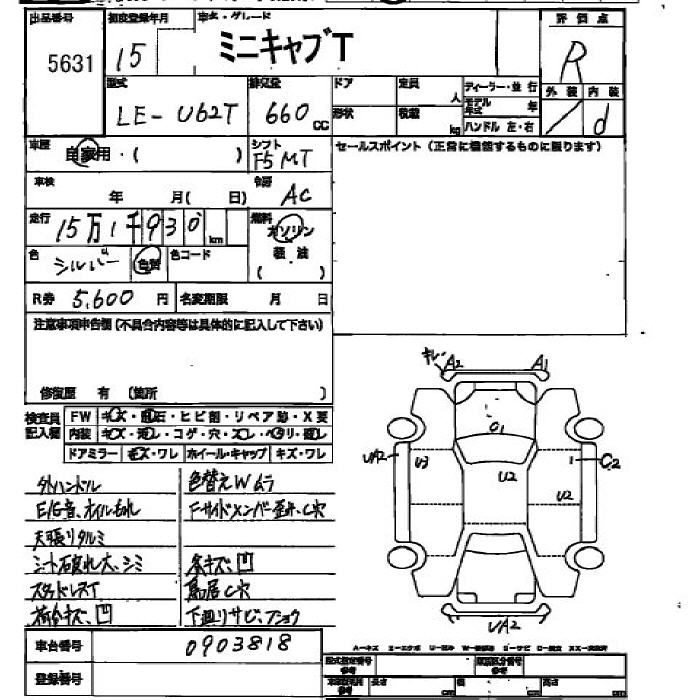 出品番号 初度登録年月 車名・グレード 評価点
5631 15 ミニキャブT R
型式 排気量 ドア 定員 人 ディーラー・並行 外装 内装
LE-U62T 660 CC 形状 積載 kg モデル年式 年 / d
ハンドル 左・右
車歴 自家用・( ) シフト F5 MT セールスポイント (正常に機能するものに限ります)
車検 年 月( 日) 冷房 AC
走行 15万1千930 km 燃料 ガソリン
軽油
( )
色 シルバー 色替 色コード
R券 5,600 円 名変期限 月 日
注意事項申告欄(不具合内容等は具体的に記入して下さい)
修復歴 有 (箇所 )
検査員記入欄 FW キズ・飛石・ヒビ割・リペア跡・X要
内装 キズ・汚レ・コゲ・穴・スレ・ヘリ・破レ
ドアミラー キズ・ワレ ホイール・キャップ キズ・ワレ
外ハンドル 色替えWムラ
E/G音、オイルもれ Fサイドメンバー歪み、C穴
天張リタルミ
シート破れ大、シミ 糸キズ、凹
スタッドレスT 鳥居C穴
荷台キズ、凹 下廻リサビ、フショク
キレ A2 A1
G1
UA2 U3 U2 1 C2
U2
UA2
車台番号 0903818
登録番号
型式指定番号 類別区分番号
長さ cm 幅 cm 高さ cm